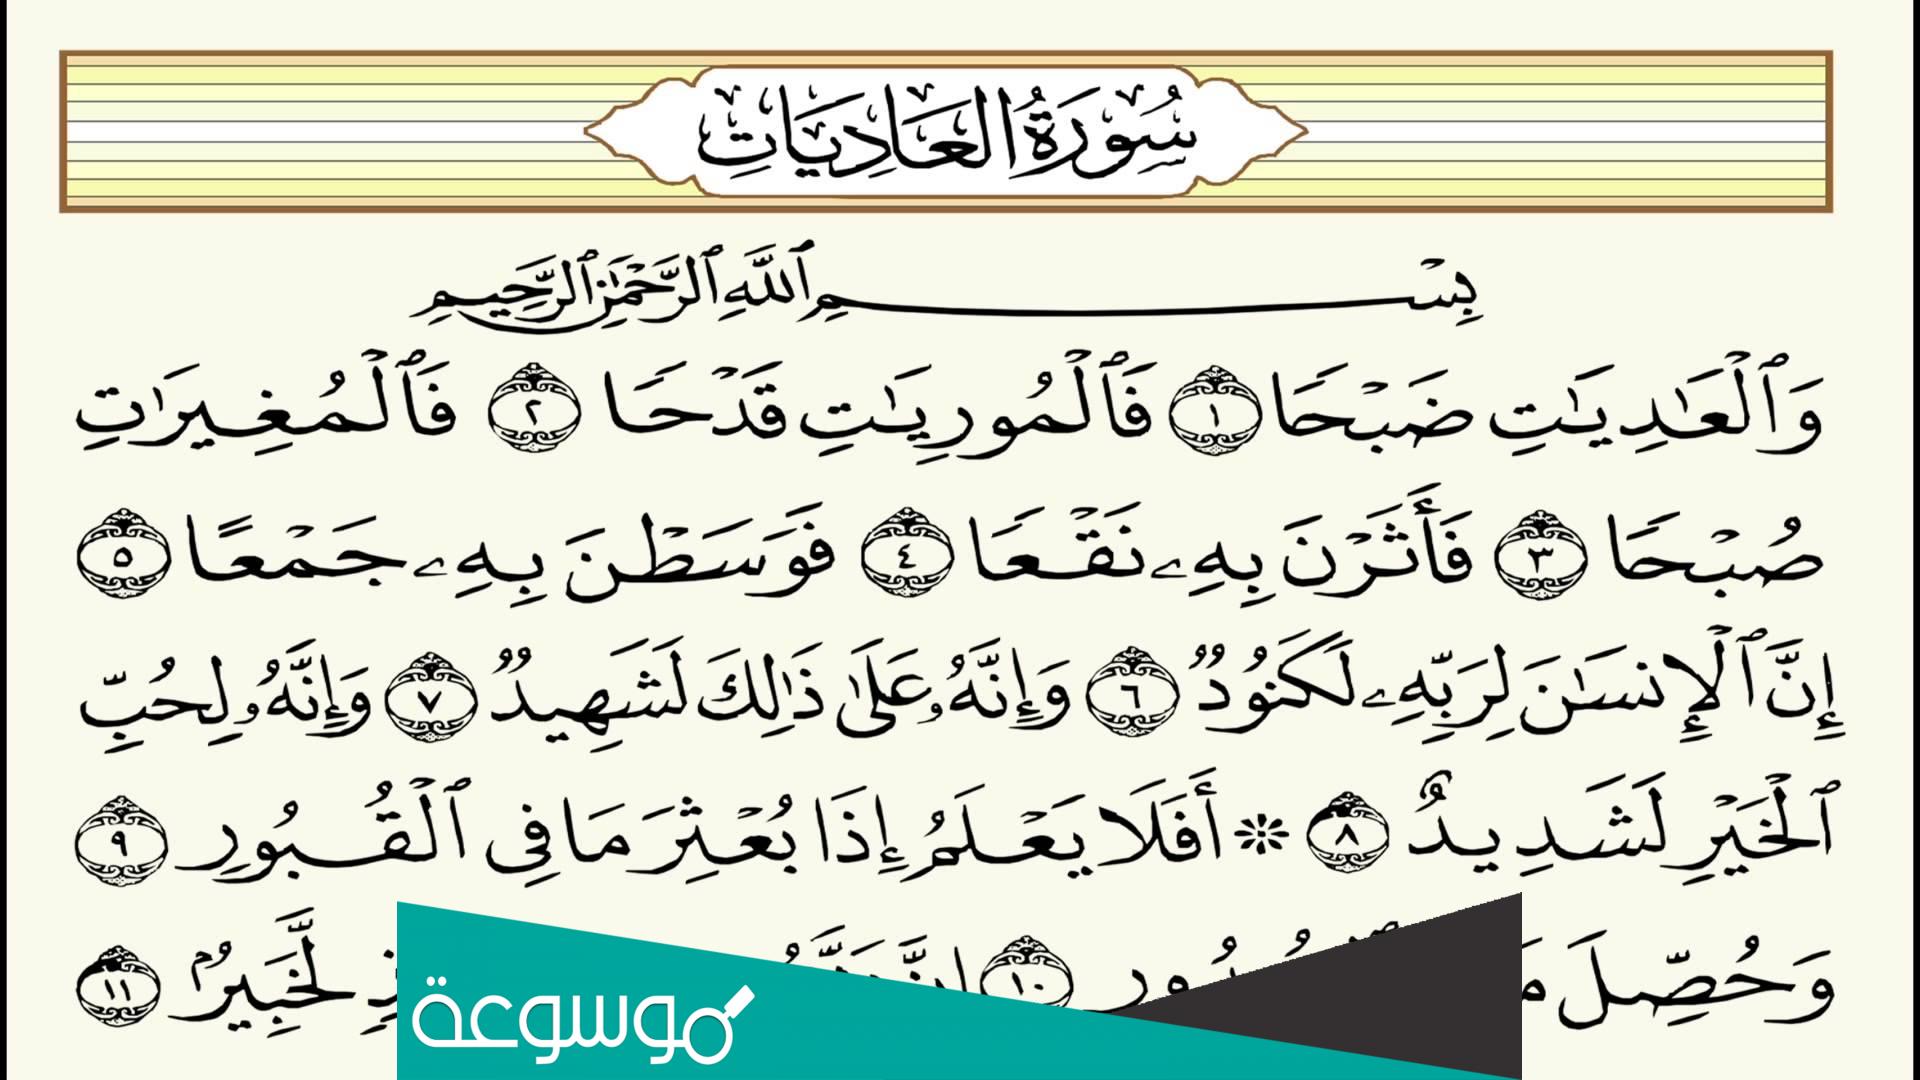 سُورَةُ العَادِيَاتِ
بِسْمِ ٱللَّهِ ٱلرَّحْمَٰنِ ٱلرَّحِيمِ
وَٱلْعَٰدِيَٰتِ ضَبْحًا ١ فَٱلْمُورِيَٰتِ قَدْحًا ٢ فَٱلْمُغِيرَٰتِ
صُبْحًا ٣ فَأَثَرْنَ بِهِۦ نَقْعًا ٤ فَوَسَطْنَ بِهِۦ جَمْعًا ٥
إِنَّ ٱلْإِنسَٰنَ لِرَبِّهِۦ لَكَنُودٌ ٦ وَإِنَّهُۥ عَلَىٰ ذَٰلِكَ لَشَهِيدٌ ٧ وَإِنَّهُۥ لِحُبِّ
ٱلْخَيْرِ لَشَدِيدٌ ٨ ۞ أَفَلَا يَعْلَمُ إِذَا بُعْثِرَ مَا فِى ٱلْقُبُورِ ٩
وَحُصِّلَ ١٠ لَّخَبِيرٌۢ ١١
موسوعة